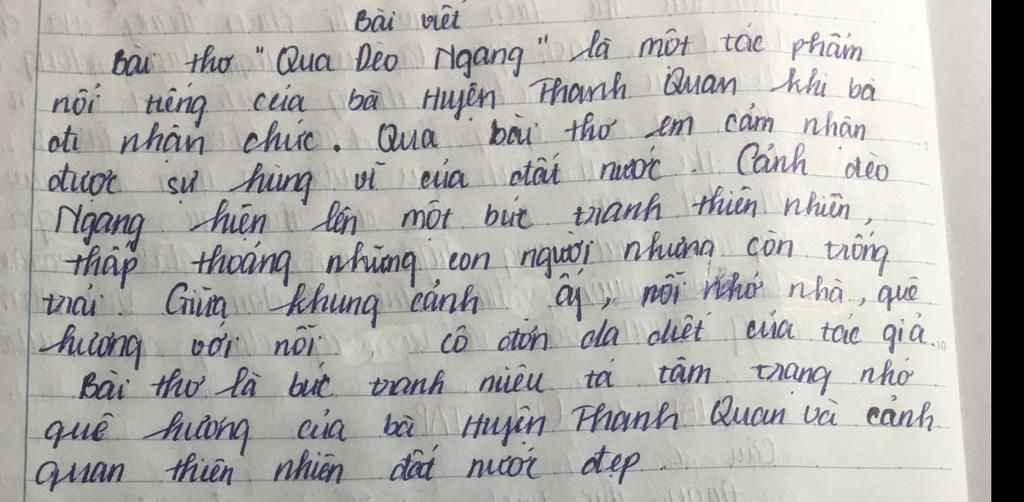 Bài viết
Bài thơ "Qua Đèo Ngang" là một tác phẩm
nổi tiếng của bà Huyện Thanh Quan khi bà
đi nhận chức. Qua bài thơ em cảm nhận
được sự hùng vĩ của đất nước. Cảnh đèo
Ngang hiện lên một bức tranh thiên nhiên,
thấp thoáng những con người nhưng còn trống
trải. Giữa khung cảnh ấy, nỗi nhớ nhà, quê
hương với nỗi cô đơn da diết của tác giả.
Bài thơ là bức tranh miêu tả tâm trạng nhớ
quê hương của bà Huyện Thanh Quan và cảnh
quan thiên nhiên đất nước đẹp.